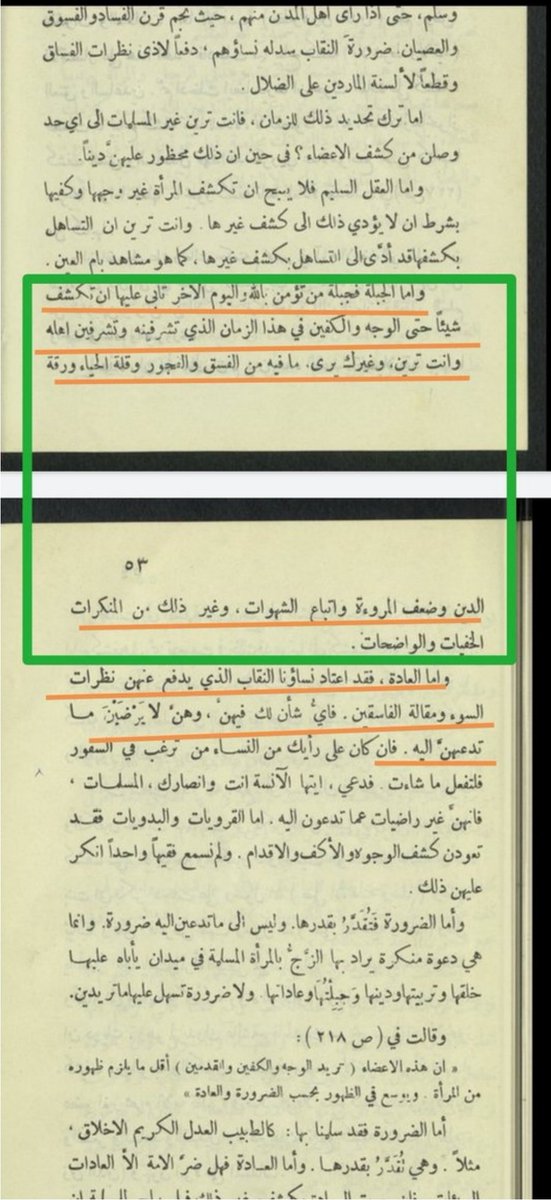 وسلم، حتى اذا رأى اهل المدن منهم، حيث نجم قرن الفساد والفسوق
والعصيان. ضرورة النقاب سدله نساؤهم، دفعاً لاذى نظرات الفساق
وقطعاً لألسنة الماردين على الضلال.
اما ترك تحديد ذلك للزمان، فانت ترين غير المسلمات الى اي حد
وصلن من كشف الاعضاء؟ في حين ان ذلك محظور عليهنَّ ديناً.
واما العقل السليم فلا يبيح ان تكشف المرأة غير وجهها وكفيها
بشرط ان لا يؤدي ذلك الى كشف غيرها. وانت ترين ان التساهل
بكشفها قد أدَّى الى التساهل بكشف غيرها، كما هو مشاهد بام العين.
واما الجبلة فجبلة من تؤمن بالله واليوم الآخر تابى عليها ان تكشف
شيئاً حتى الوجه والكفين في هذا الزمان الذي تشرفينه وتشرفين اهله
وانت ترين، وغيرك يرى، ما فيه من الفسق والفجور وقلة الحياء ورقة
٥٣
الدين وضعف المروءة واتباع الشهوات، وغير ذلك من المنكرات
الخفيات والواضحات.
واما العادة، فقد اعتاد نساؤنا النقاب الذي يدفع عنهن نظرات
السوء ومقالة الفاسقين. فايُّ شأن لك فيهنَّ، وهنَّ لا يَرْضَيْنَ ما
تدعينهنَّ اليه. فان كان على رأيك من النساء من ترغب في السفور
فلتفعل ما شاءت. فدعي، ايتها الآنسة انت وانصارك، المسلمات،
فانهنَّ غير راضيات عما تدعون اليه. اما القرويات والبدويات فقد
تعودن كشف الوجوه والأكف والاقدام. ولم نسمع فقيهاً واحداً انكر
عليهن ذلك.
وأما الضرورة فَتُقَدَّرُ بقدرها. وليس الى ما تدعين اليه ضرورة. وانما
هي دعوة منكرة يراد بها الزَّجُّ بالمرأة المسلمة في ميدان يأباه عليها
خلقها وتربيتها ودينها وَجِبِلَّتُهَا وعاداتها. ولا ضرورة تسهل عليها ما تريدين.
وقالت في (ص ٢١٨):
« ان هذه الاعضاء (تريد الوجه والكفين والقدمين) أقل ما يلزم ظهوره
من المرأة. ويوسع في الظهور بحسب الضرورة والعادة »
أما الضرورة فقد سلمنا بها: كالطبيب العدل الكريم الاخلاق،
مثلاً. وهي تُقَدَّرُ بقدرها. وأما العادة فهل ضرَّ الامة الأ العادات